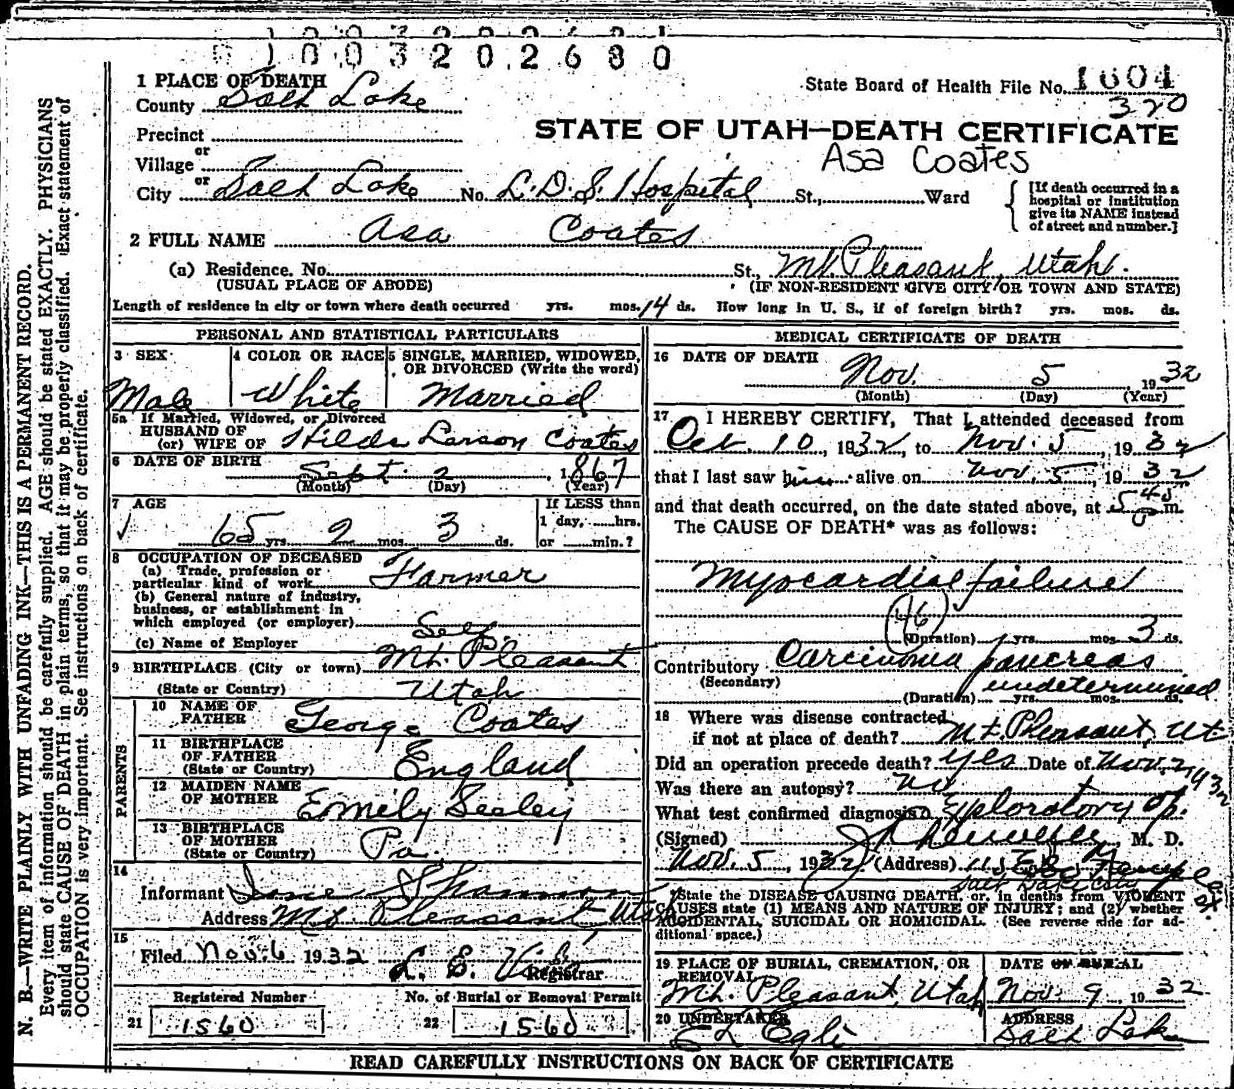 1003202680
1 PLACE OF DEATH
State Board of Health File No. 1604
County Salt Lake
320
Precinct
STATE OF UTAH—DEATH CERTIFICATE
or
Village
Asa Coates
or
City Salt Lake No. L.D.S. Hospital St., Ward
{ [If death occurred in a
hospital or institution
give its NAME instead
of street and number.]
2 FULL NAME Asa Coates
(a) Residence. No. St., Mt. Pleasant, Utah.
(USUAL PLACE OF ABODE) (IF NON-RESIDENT GIVE CITY OR TOWN AND STATE)
Length of residence in city or town where death occurred yrs. mos. 14 ds. How long in U. S., if of foreign birth? yrs. mos. ds.
PERSONAL AND STATISTICAL PARTICULARS
3 SEX 4 COLOR OR RACE 5 SINGLE, MARRIED, WIDOWED,
OR DIVORCED (Write the word)
Male White Married
5a If Married, Widowed, or Divorced
HUSBAND OF
(or) WIFE OF Hilda Larson Coates
6 DATE OF BIRTH Sept. 2, 1867
(Month) (Day) (Year)
7 AGE If LESS than
1 day, hrs.
65 yrs. 2 mos. 3 ds. or min.?
8 OCCUPATION OF DECEASED
(a) Trade, profession or
particular kind of work Farmer
(b) General nature of industry,
business, or establishment in
which employed (or employer) Self
(c) Name of Employer
9 BIRTHPLACE (City or town) Mt. Pleasant
(State or Country) Utah
PARENTS
10 NAME OF
FATHER George Coates
11 BIRTHPLACE
OF FATHER
(State or Country) England
12 MAIDEN NAME
OF MOTHER Emily Seeley
13 BIRTHPLACE
OF MOTHER
(State or Country) Pa.
14
Informant Shannon
Address Mt. Pleasant Utah
15
Filed Nov. 6 1932 L. E.
Registrar
Registered Number No. of Burial or Removal Permit
21 1560 22 1560
MEDICAL CERTIFICATE OF DEATH
16 DATE OF DEATH
Nov. 5, 1932
(Month) (Day) (Year)
17 I HEREBY CERTIFY, That I attended deceased from
Oct. 10, 1932, to Nov. 5, 1932
that I last saw him alive on Nov. 5, 1932
and that death occurred, on the date stated above, at 5 45 m.
The CAUSE OF DEATH* was as follows:
Myocardial failure
(46)
(Duration) yrs. mos. 3 ds.
Contributory Carcinoma pancreas
(Secondary) undetermined
(Duration) yrs. mos. ds.
18 Where was disease contracted
if not at place of death? Mt. Pleasant, Ut
Did an operation precede death? yes Date of Nov. 2, 1932
Was there an autopsy? no
What test confirmed diagnosis? Exploratory op.
(Signed) M. D.
Nov. 5, 1932 (Address) 115 E. So. Temple
Salt Lake City
*State the DISEASE CAUSING DEATH, or, in deaths from VIOLENT
CAUSES state (1) MEANS AND NATURE OF INJURY; and (2) whether
ACCIDENTAL, SUICIDAL OR HOMICIDAL. (See reverse side for ad-
ditional space.)
19 PLACE OF BURIAL, CREMATION, OR
REMOVAL
DATE OF BURIAL
Mt. Pleasant, Utah Nov. 9, 1932
20 UNDERTAKER ADDRESS
Salt Lake
READ CAREFULLY INSTRUCTIONS ON BACK OF CERTIFICATE
N. B.—WRITE PLAINLY WITH UNFADING INK—THIS IS A PERMANENT RECORD.
Every item of information should be carefully supplied. AGE should be stated EXACTLY. PHYSICIANS
should state CAUSE OF DEATH in plain terms, so that it may be properly classified. Exact statement of
OCCUPATION is very important. See instructions on back of certificate.